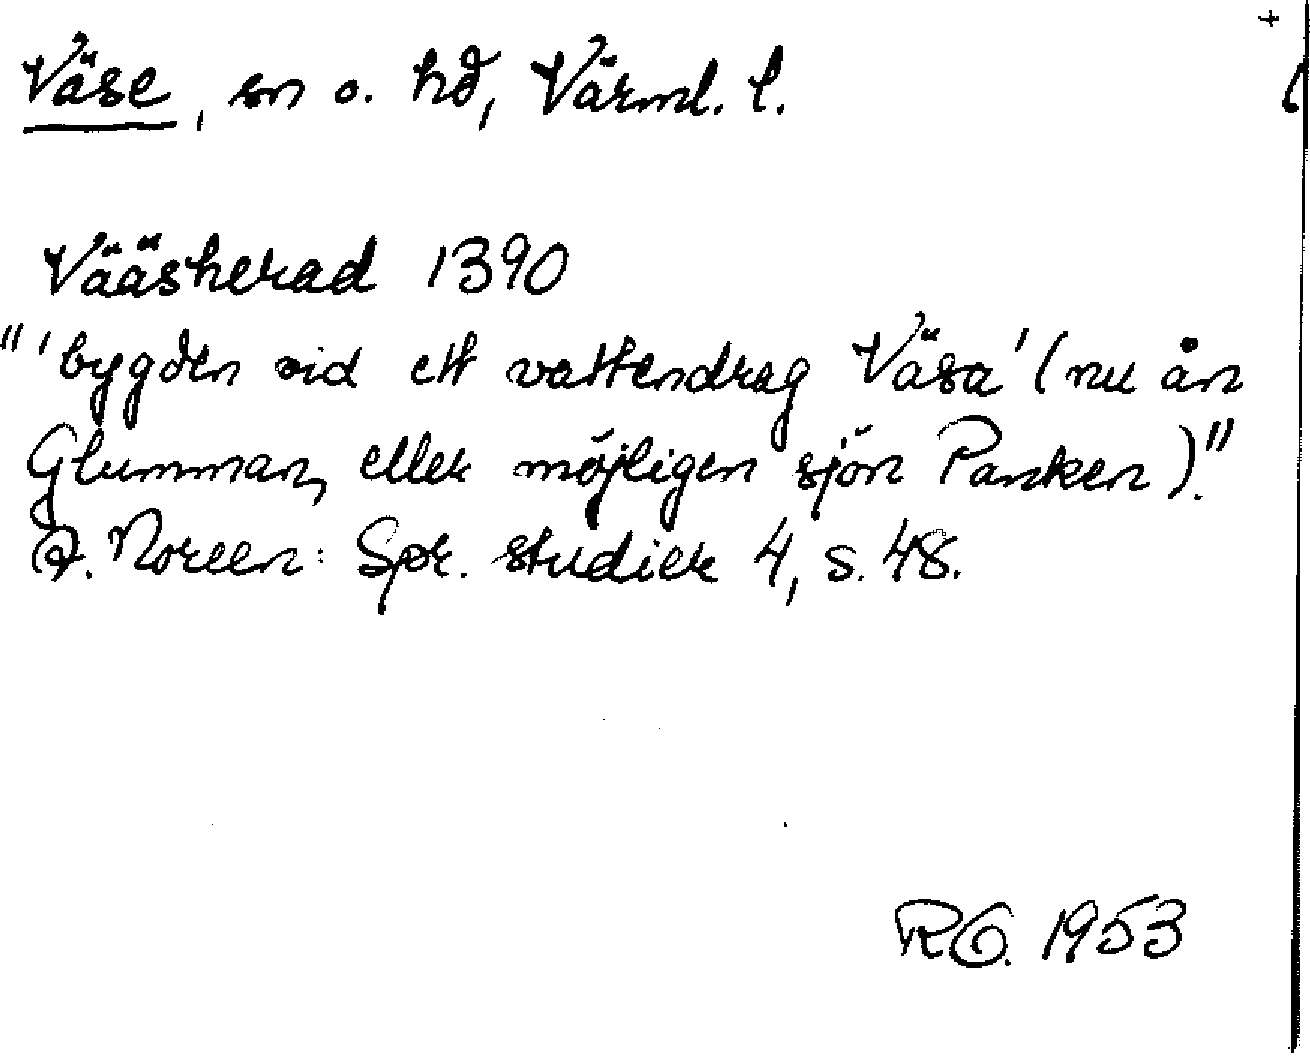 Väse, sn o. hd, Värml. l.
Vääsherad 1390
"'bygden vid ett vattendrag Väsa' (nu ån
Glumman, eller möjligen sjön Panken)."
A. Noreen: Spr. studier 4, s. 48.
RG. 1953